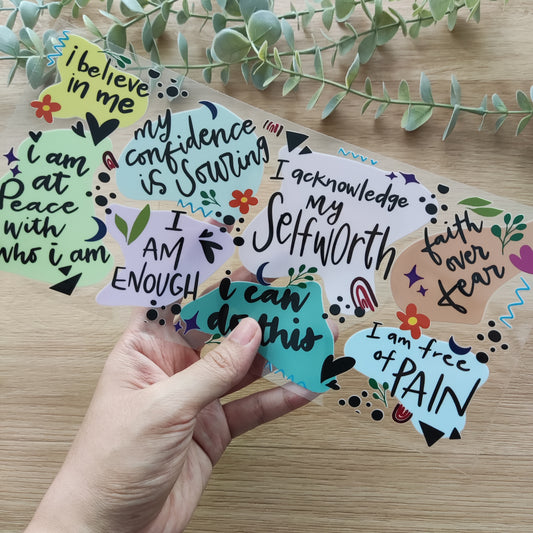 i believe
in me
my
confidence
is Souring
i am
at
Peace
with
who i am
I
AM
ENOUGH
I acknowledge
My
Selfworth
faith
over
fear
i can
do this
I am free
of PAIN